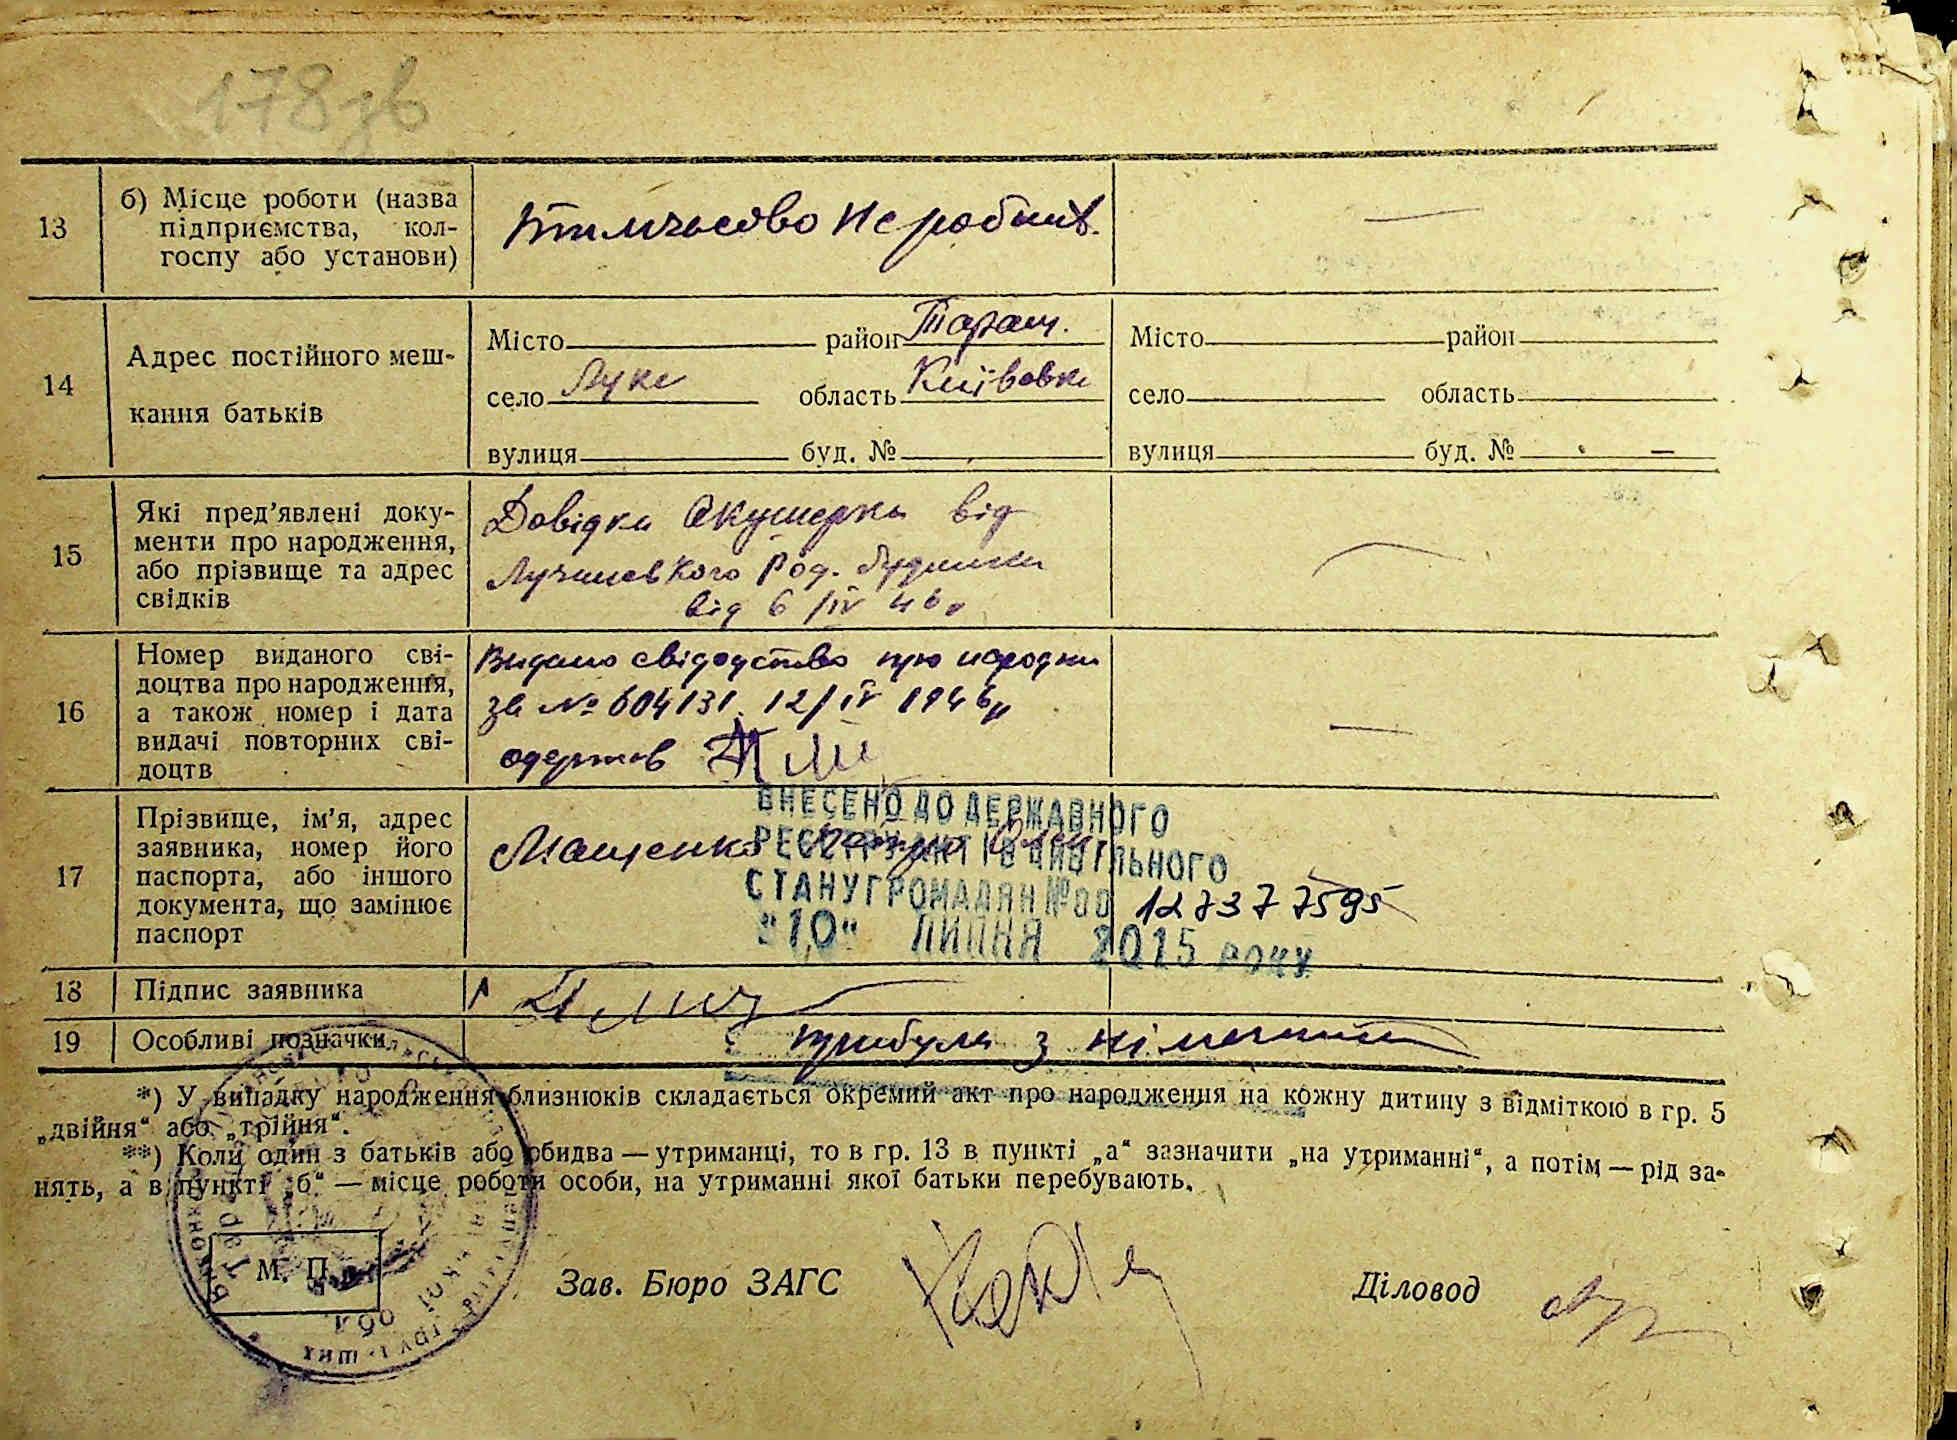 178 зв
13
б) Місце роботи (назва
підприємства, кол-
госпу або установи)
тимчасово не робит.
14
Адрес постійного меш-
кання батьків
Місто район Таращ.
село Лука область Київовка
вулиця буд. №
Місто район
село область
вулиця буд. № —
15
Які пред'явлені доку-
менти про народження,
або прізвище та адрес
свідків
Довідка Акушерка від
Род. будинка
від 6/IV 46 р
16
Номер виданого сві-
доцтва про народження,
а також номер і дата
видачі повторних сві-
доцтв
Видано свідодство про народжн
за № 604131 12/IV 1946 р
одержав
17
Прізвище, ім'я, адрес
заявника, номер його
паспорта, або іншого
документа, що замінює
паспорт
Мащенко
ВНЕСЕНО ДО ДЕРЖАВНОГО
РЕЄСТРУ АКТІВ ЦИВІЛЬНОГО
СТАНУ ГРОМАДЯН №00 127377595
"10" ЛИПНЯ 2015 РОКУ
18
Підпис заявника
19
Особливі позначки
прибула з німеччини
*) У випадку народження близнюків складається окремий акт про народження на кожну дитину з відміткою в гр. 5
„двійня“ або „трійня“.
**) Коли один з батьків або обидва — утриманці, то в гр. 13 в пункті „а“ зазначити „на утриманні“, а потім — рід за-
нять, а в пункті „б“ — місце роботи особи, на утриманні якої батьки перебувають.
М. П.
Зав. Бюро ЗАГС
Діловод